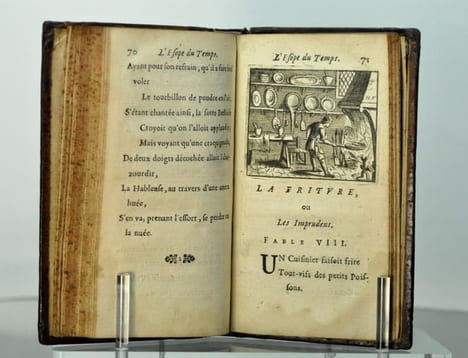 70 L'Esope du Temps.
Ayant pour son refrain, qu'il a fait
voler
Le tourbillon de poudre en l'air,
S'étant chantée ainsi, la sotte
Croyoit qu'on l'alloit applaudir
Mais voyant qu'une croquignole
De deux doigts décochée alloit
zourdir,
La Hableuse, au travers d'une
huée,
S'en va, prenant l'essort, se perdre en
la nuée.
L'Esope du Temps. 71
LA FRITVRE,
ou
Les Imprudens.
FABLE VIII.
UN Cuisinier faisoit frire
Tout-vifs des petits Pois-
sons.